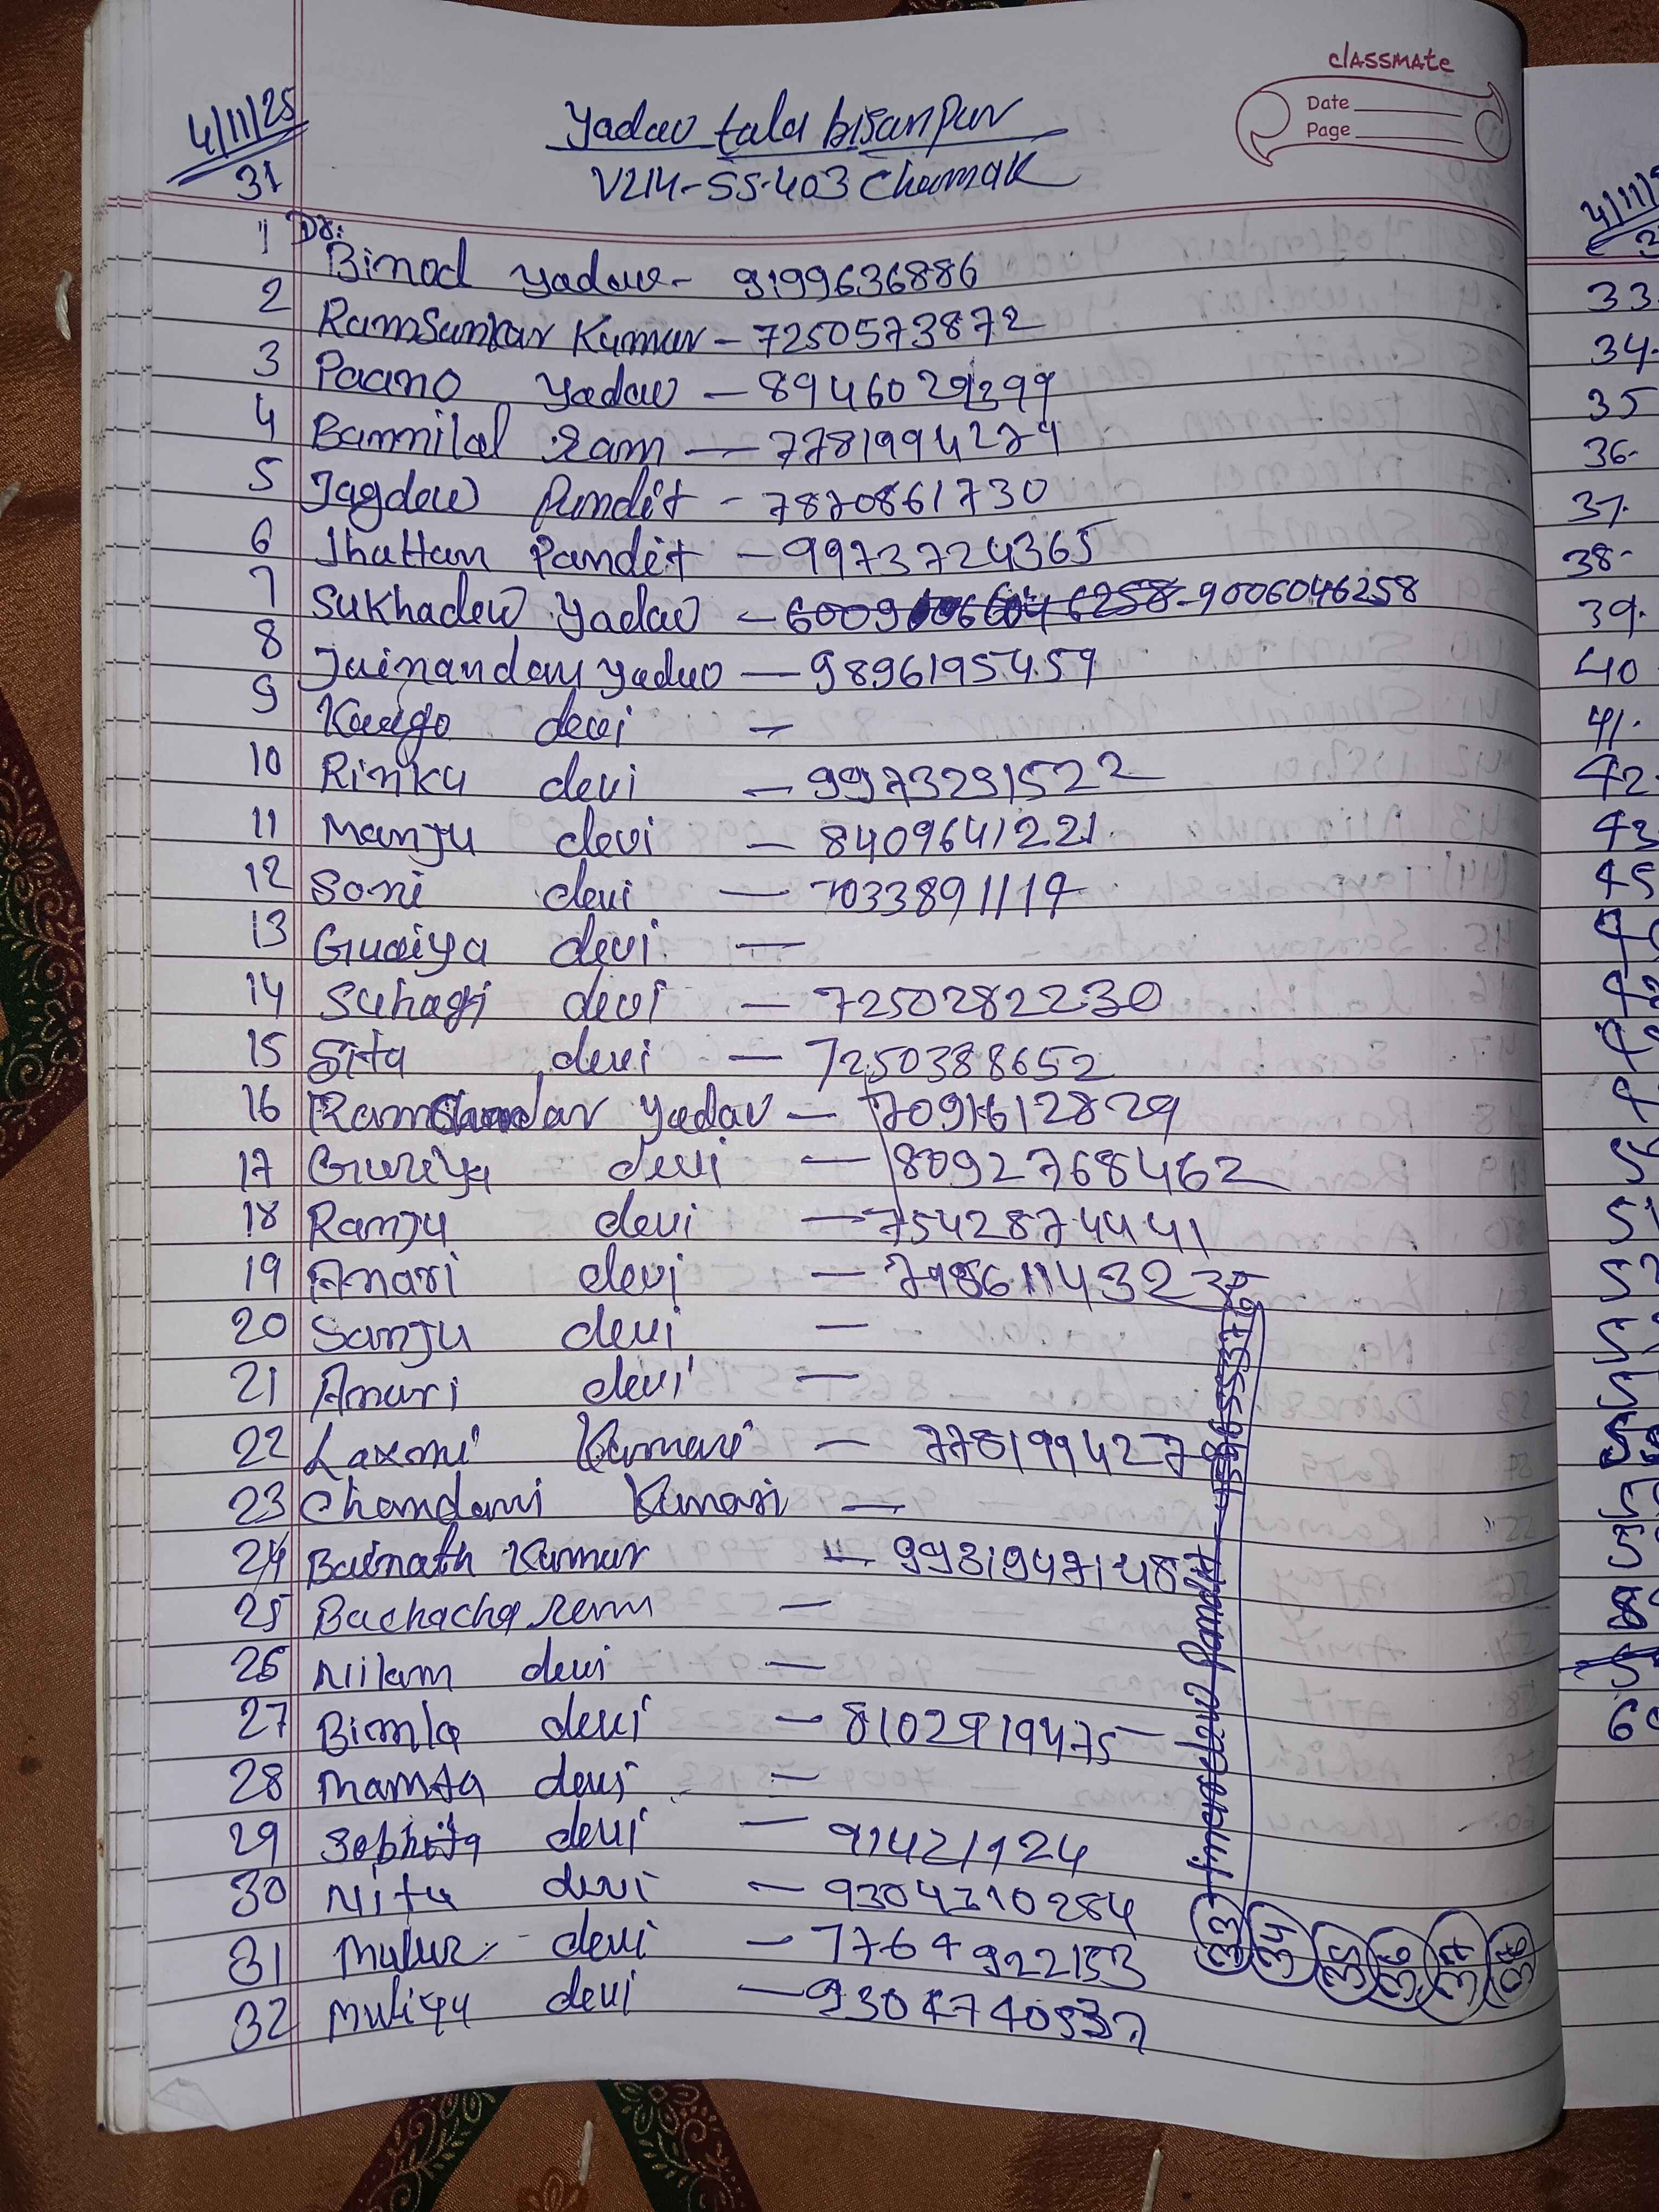 classmate
Date
Page
4/11/25
31
Yadav tala bisanpur
V214-SS-403 Chamak
1 Dr: Binod Yadav - 9199636886
2 RamSunkar Kumar - 7250573872
3 Paano Yadav - 8946029399
4 Bannilal Ram - 7781994279
5 Jagdew Pandit - 7870861730
6 Jhattan Pandit - 9973724365
7 Sukhadew Yadav - 9006046258
8 Jainandan Yadav - 9896195459
9 devi -
10 Rinku devi - 9973291522
11 Manju devi - 8409641221
12 Soni devi - 7033891117
13 Guriya devi -
14 Suhagi devi - 7250282230
15 Sita devi - 7250388652
16 Ramchandar Yadav - 7091612829
17 Guriya devi - 8092768462
18 Ranju devi - 7542874441
19 Anari devi -
20 Sanju devi -
21 Anari devi -
22 Laxmi Kumari -
23 Chandani Kumari -
24 Bainath Kumar -
25 Bachacha Ram -
26 Nilam devi -
27 Bimla devi - 8102919475
28 Mamta devi -
29 devi - 91421124
30 Nitu devi - 9304310284
31 devi - 7764922153
32 devi -
33 34 35 36 37 38
4/11/
33.
34.
35
36-
37.
38-
39.
40
41.
42.
43
45
51
52